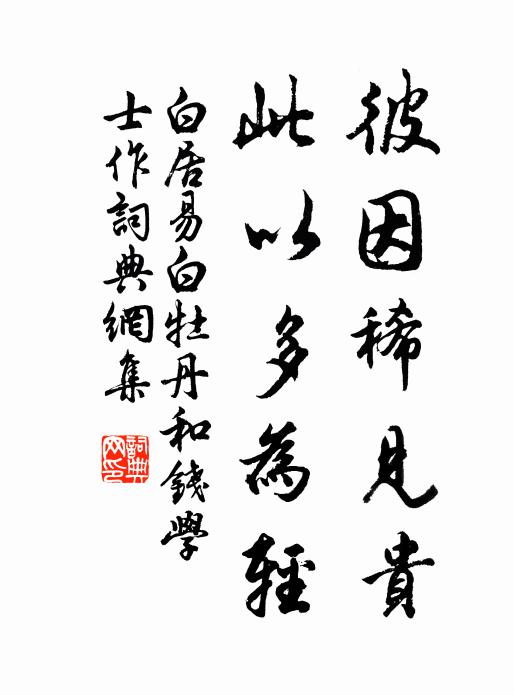 彼因稀見貴
此以多為輕
白居易白牡丹和錢學
士作詞典網集
詞典網印